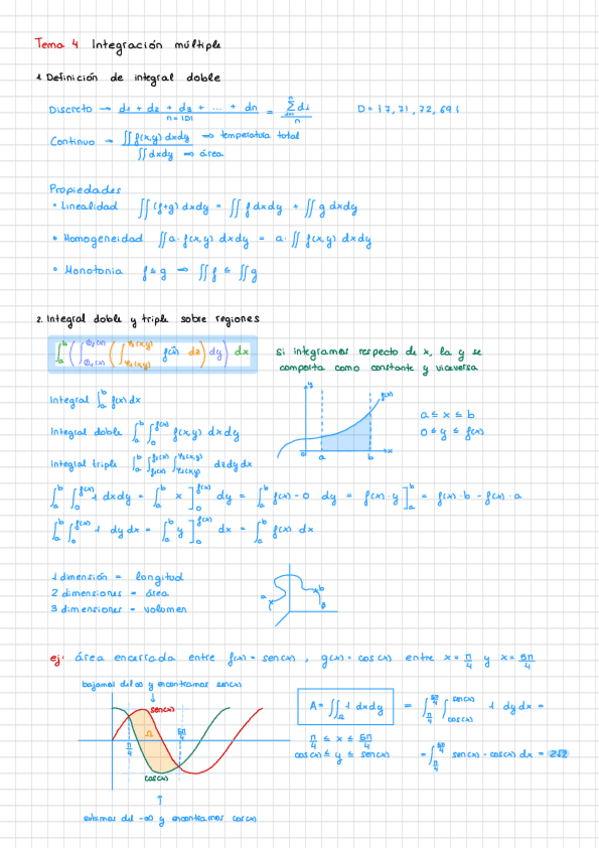 Tema 4 Integración múltiple
1. Definición de integral doble
Discreto → (d1 + d2 + d3 + ... + dn) / (n = |D|) = (∑ di) / n
Continuo → ∬ f(x,y) dxdy → temperatura total
∬ dxdy → área
Propiedades
• Linealidad ∬ (f+g) dxdy = ∬ f dxdy + ∬ g dxdy
• Homogeneidad ∬ a· f(x,y) dxdy = a· ∬ f(x,y) dxdy
• Monotonia f ≤ g → ∬ f ≤ ∬ g
2. Integral doble y triple sobre regiones
Si integramos respecto de x, la y se
comporta como constante y viceversa
y
f(x)
0 a b x
a ≤ x ≤ b
0 ≤ y ≤ f(x)
Integral ∫_a^b f(x) dx
Integral doble ∫_a^b ∫_0^f(x) f(x,y) dxdy
Integral triple
dzdydx
∫_a^b ∫_0^f(x) 1 dxdy = ∫_a^b x ]_0^f(x) dy = ∫_a^b f(x) - 0 dy = f(x)·y ]_a^b = f(x)·b - f(x)·a
∫_a^b ∫_0^f(x) 1 dydx = ∫_a^b y ]_0^f(x) dx = ∫_a^b f(x) dx
1 dimensión = longitud
2 dimensiones = área
3 dimensiones = volumen
a
b
ej: área encerrada entre f(x) = sen(x) , g(x) = cos(x) entre x = π/4 y x = 5π/4
bajamos del ∞ y encontramos sen(x)
sen(x)
Ω
π/4
5π/4
cos(x)
subimos del -∞ y encontramos cos(x)
A = ∬_Ω 1 dxdy = ∫_π/4^5π/4 ∫_cos(x)^sen(x) 1 dydx =
π/4 ≤ x ≤ 5π/4
cos(x) ≤ y ≤ sen(x)
= ∫_π/4^5π/4 sen(x) - cos(x) dx = 2√2